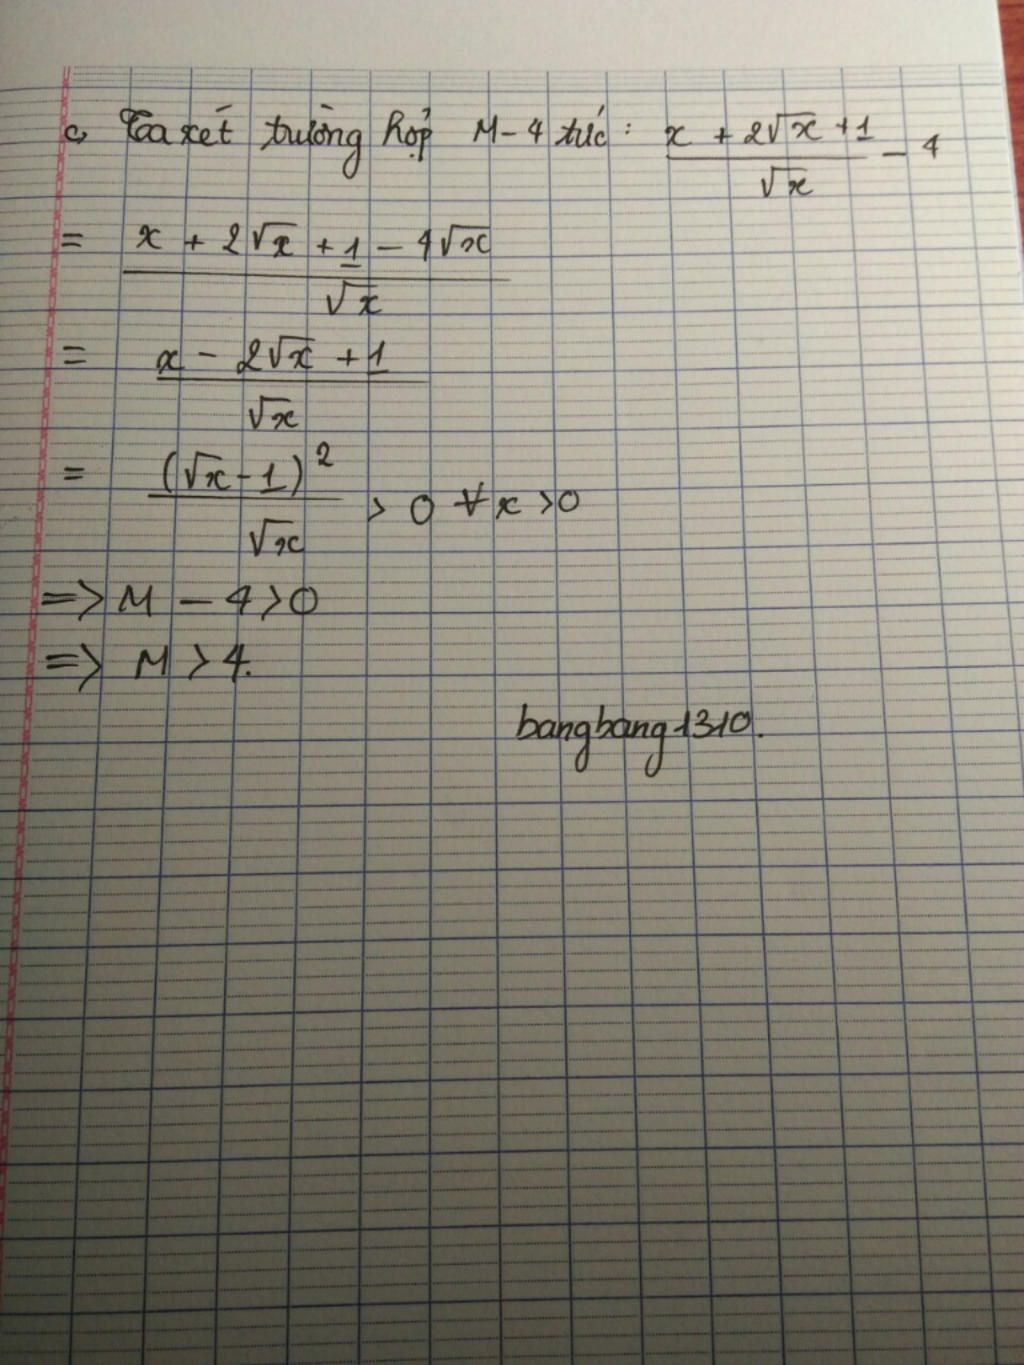 c, Ta xét trường hợp M - 4 tức: x + 2√x + 1 / √x - 4
= x + 2√x + 1 - 4√x / √x
= x - 2√x + 1 / √x
= (√x - 1)² / √x > 0 ∀ x > 0
=> M - 4 > 0
=> M > 4.
bangbang1310.